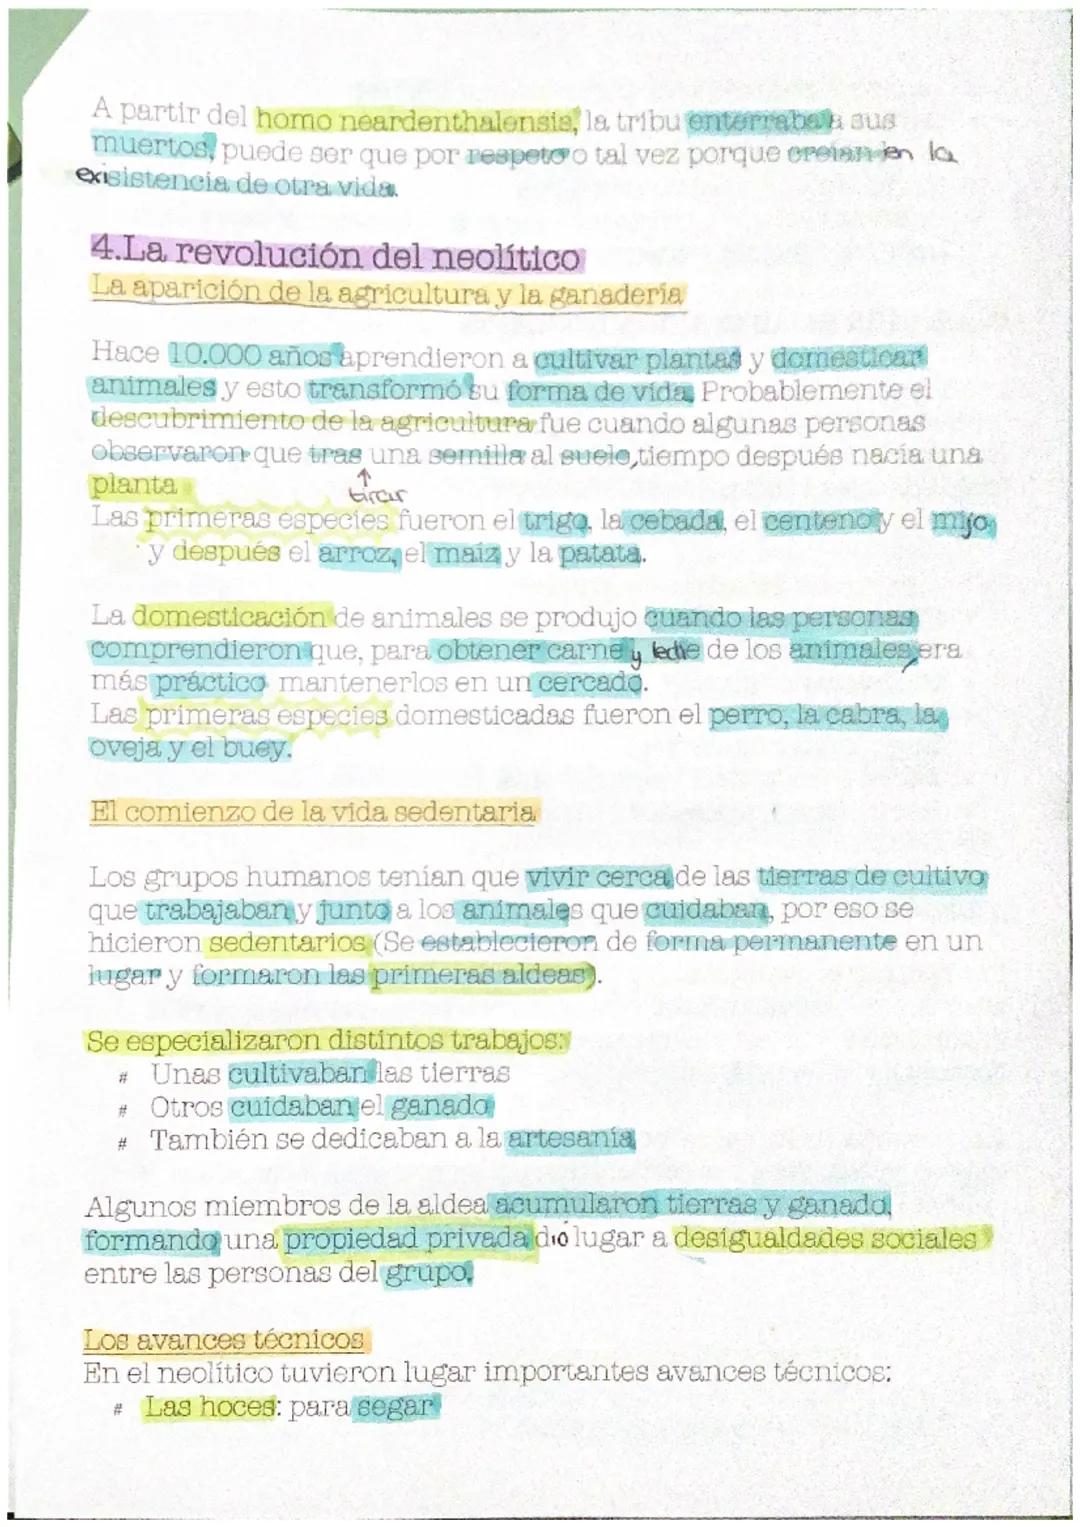 A partir del homo neardenthalensis, la tribu enterraba a sus
muertos, puede ser que por respeto o tal vez porque creían en la
exisistencia de otra vida.
4.La revolución del neolítico
La aparición de la agricultura y la ganadería
Hace 10.000 años aprendieron a cultivar plantas y domesticar
animales y esto transformó su forma de vida. Probablemente el
descubrimiento de la agricultura fue cuando algunas personas
observaron que tras una semilla al suelo, tiempo después nacía una
planta
tirar
Las primeras especies fueron el trigo, la cebada, el centeno y el mijo
y después el arroz, el maíz y la patata.
La domesticación de animales se produjo cuando las personas
comprendieron que, para obtener carne y leche de los animales, era
más práctico mantenerlos en un cercado.
Las primeras especies domesticadas fueron el perro, la cabra, la
oveja y el buey.
El comienzo de la vida sedentaria
Los grupos humanos tenían que vivir cerca de las tierras de cultivo
que trabajaban y junto a los animales que cuidaban, por eso se
hicieron sedentarios (Se establecieron de forma permanente en un
lugar y formaron las primeras aldeas).
Se especializaron distintos trabajos:
# Unas cultivaban las tierras
# Otros cuidaban el ganado
# También se dedicaban a la artesanía
Algunos miembros de la aldea acumularon tierras y ganado,
formando una propiedad privada dió lugar a desigualdades sociales
entre las personas del grupo.
Los avances técnicos
En el neolítico tuvieron lugar importantes avances técnicos:
# Las hoces: para segar